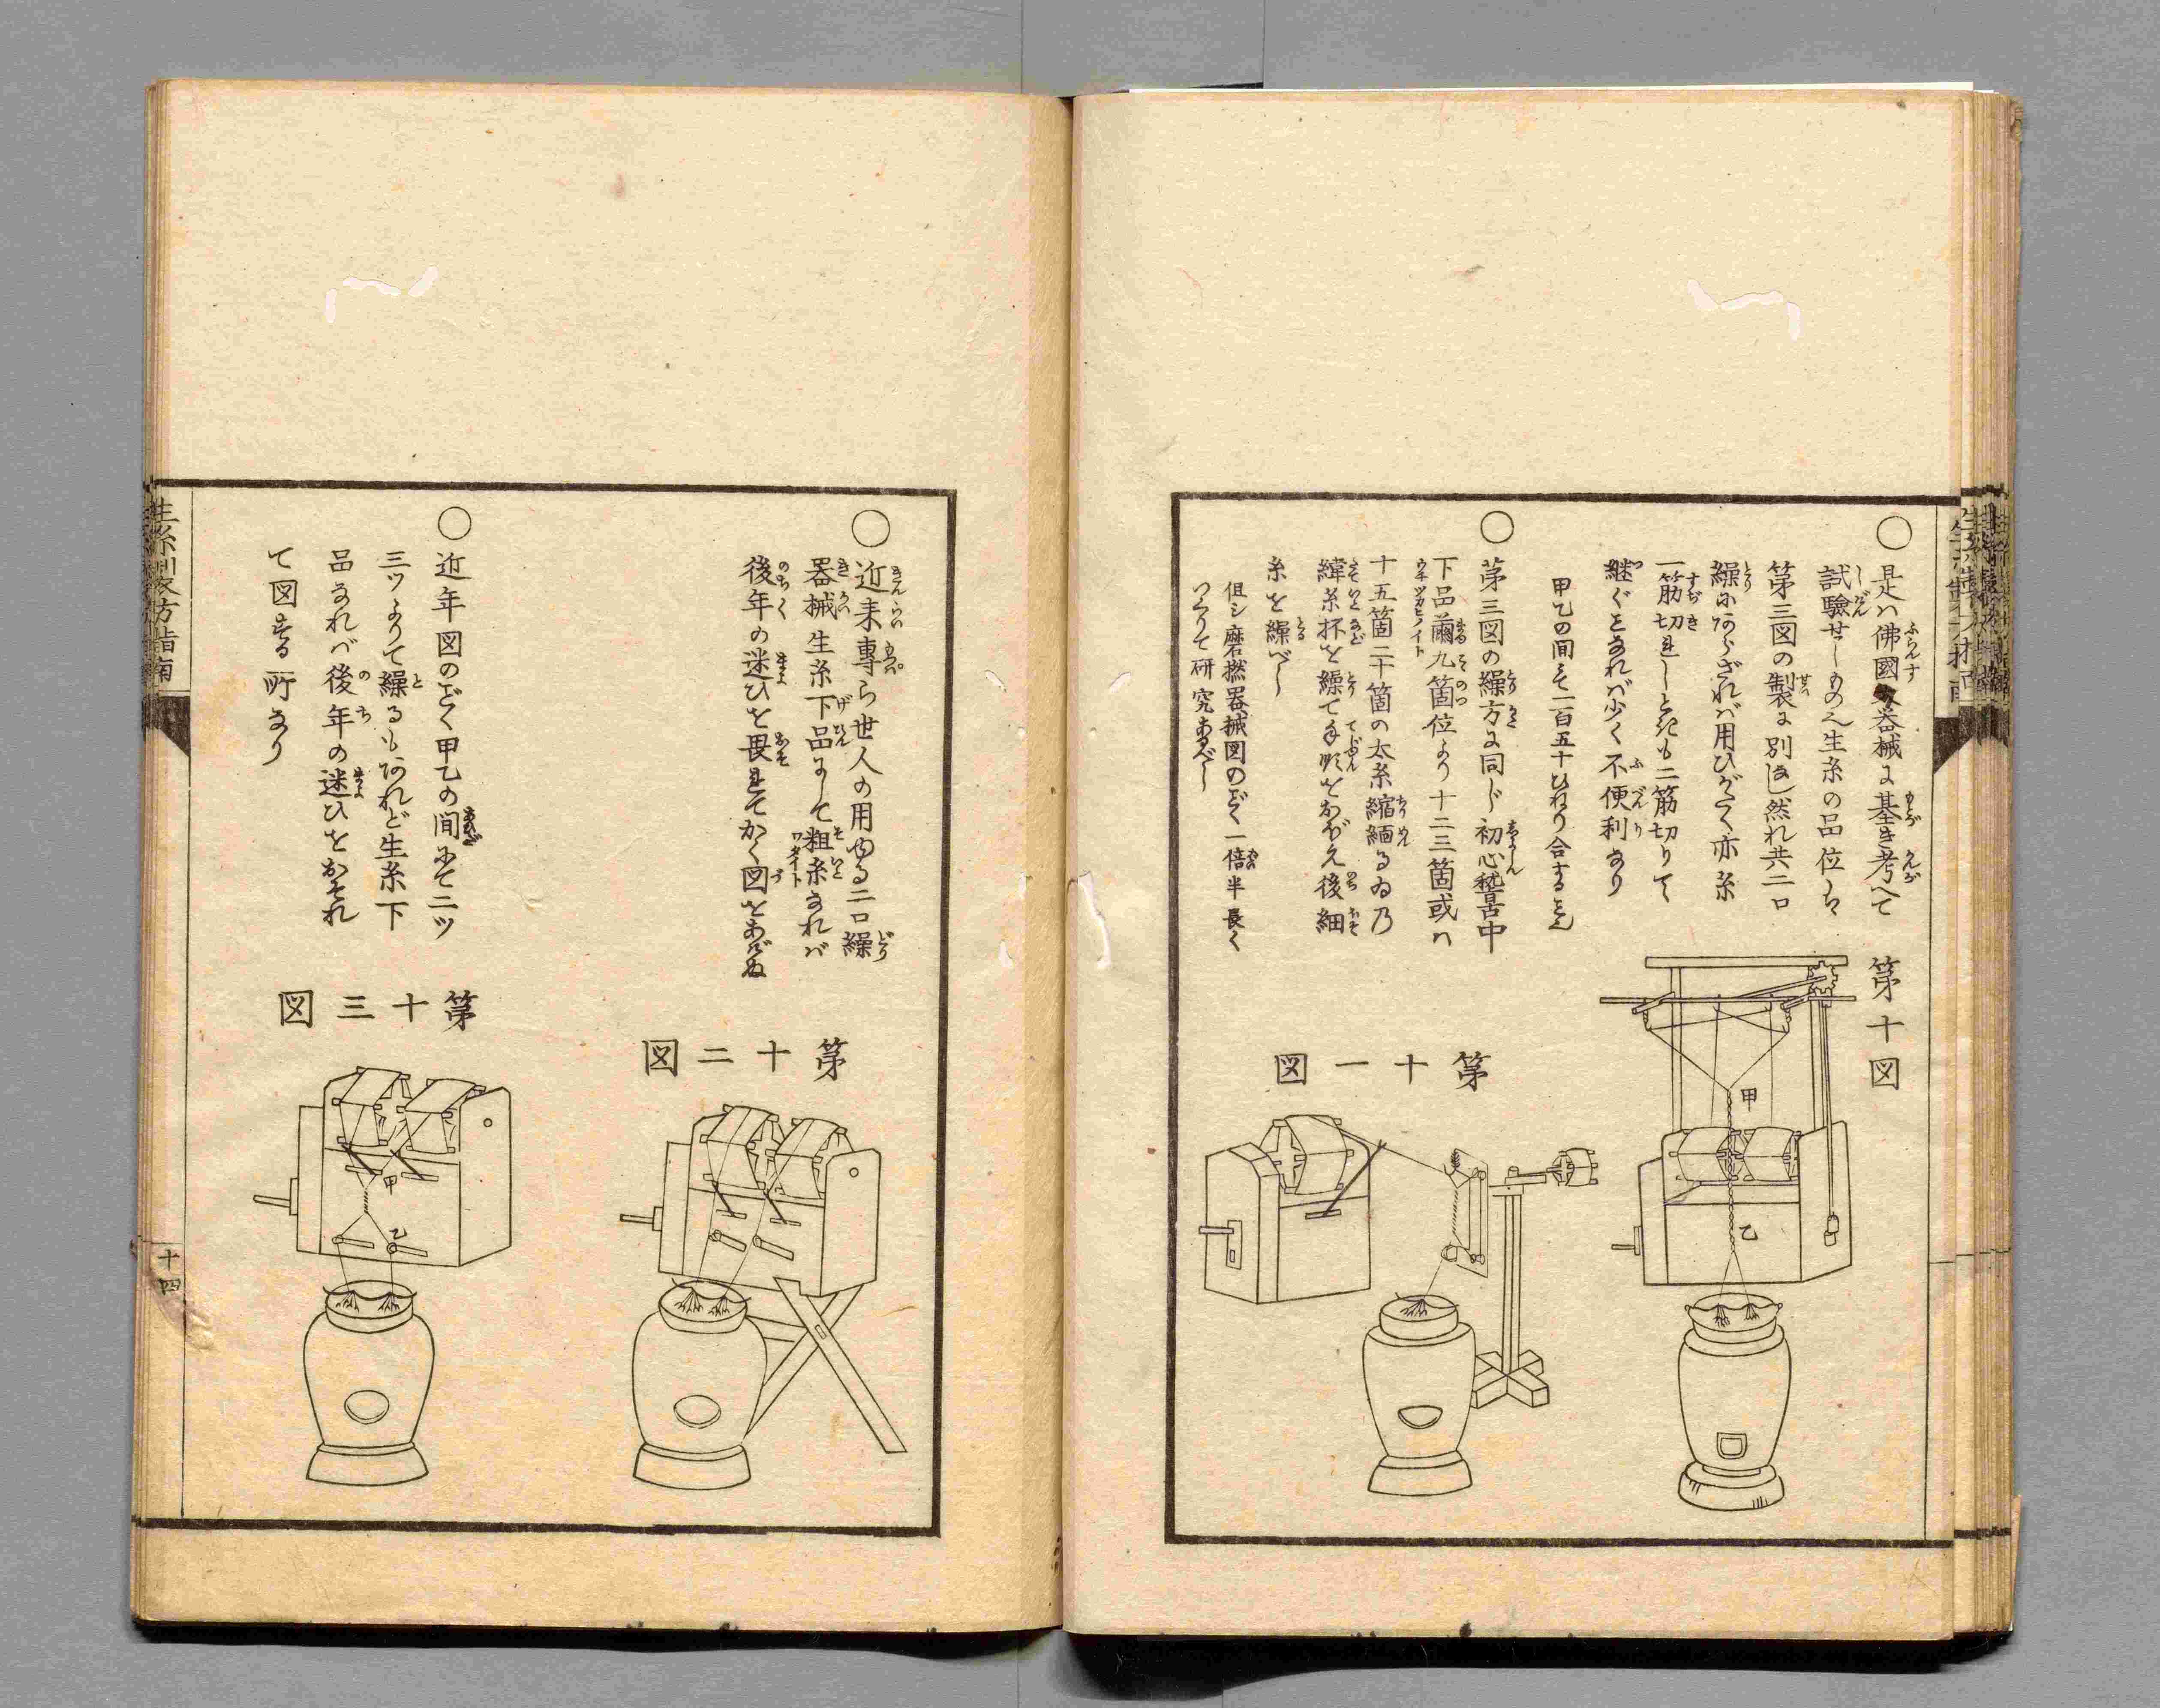 ○是ハ佛國器械ニ基き考へて
試驗せしもの之生糸の品位ハ
第三図の製ニ別ほし然れ共二口
繰にあらざれバ用ひがたく亦糸
一筋切れしときも二筋切りて
継ぐとなれバ少く不便利なり
甲乙の間そ一百五十ひねり合する
第十図
甲
乙
○苐三図の繰方ニ同じ初心稽古中
下品繭九箇位より十二三箇或ハ
十五箇二十箇の太糸縮緬る為乃
緯糸杯を繰て手順をおぼえ後細
糸を繰べし
但シ磨撚器械図のごく一倍半長く
つくりて研究あるべし
苐十一図
○近来專ら世人の用ゆる二口繰
器械生糸下品にして粗糸なれバ
後年の迷ひを畏れてかく図をあげぬ
苐十二図
○近年図のごく甲乙の間にて二ツ
三ツよりて繰るもあれど生糸下
品なれバ後年の迷ひをおそれ
て図する所なり
苐十三図
甲
乙
生糸製方指南
十四